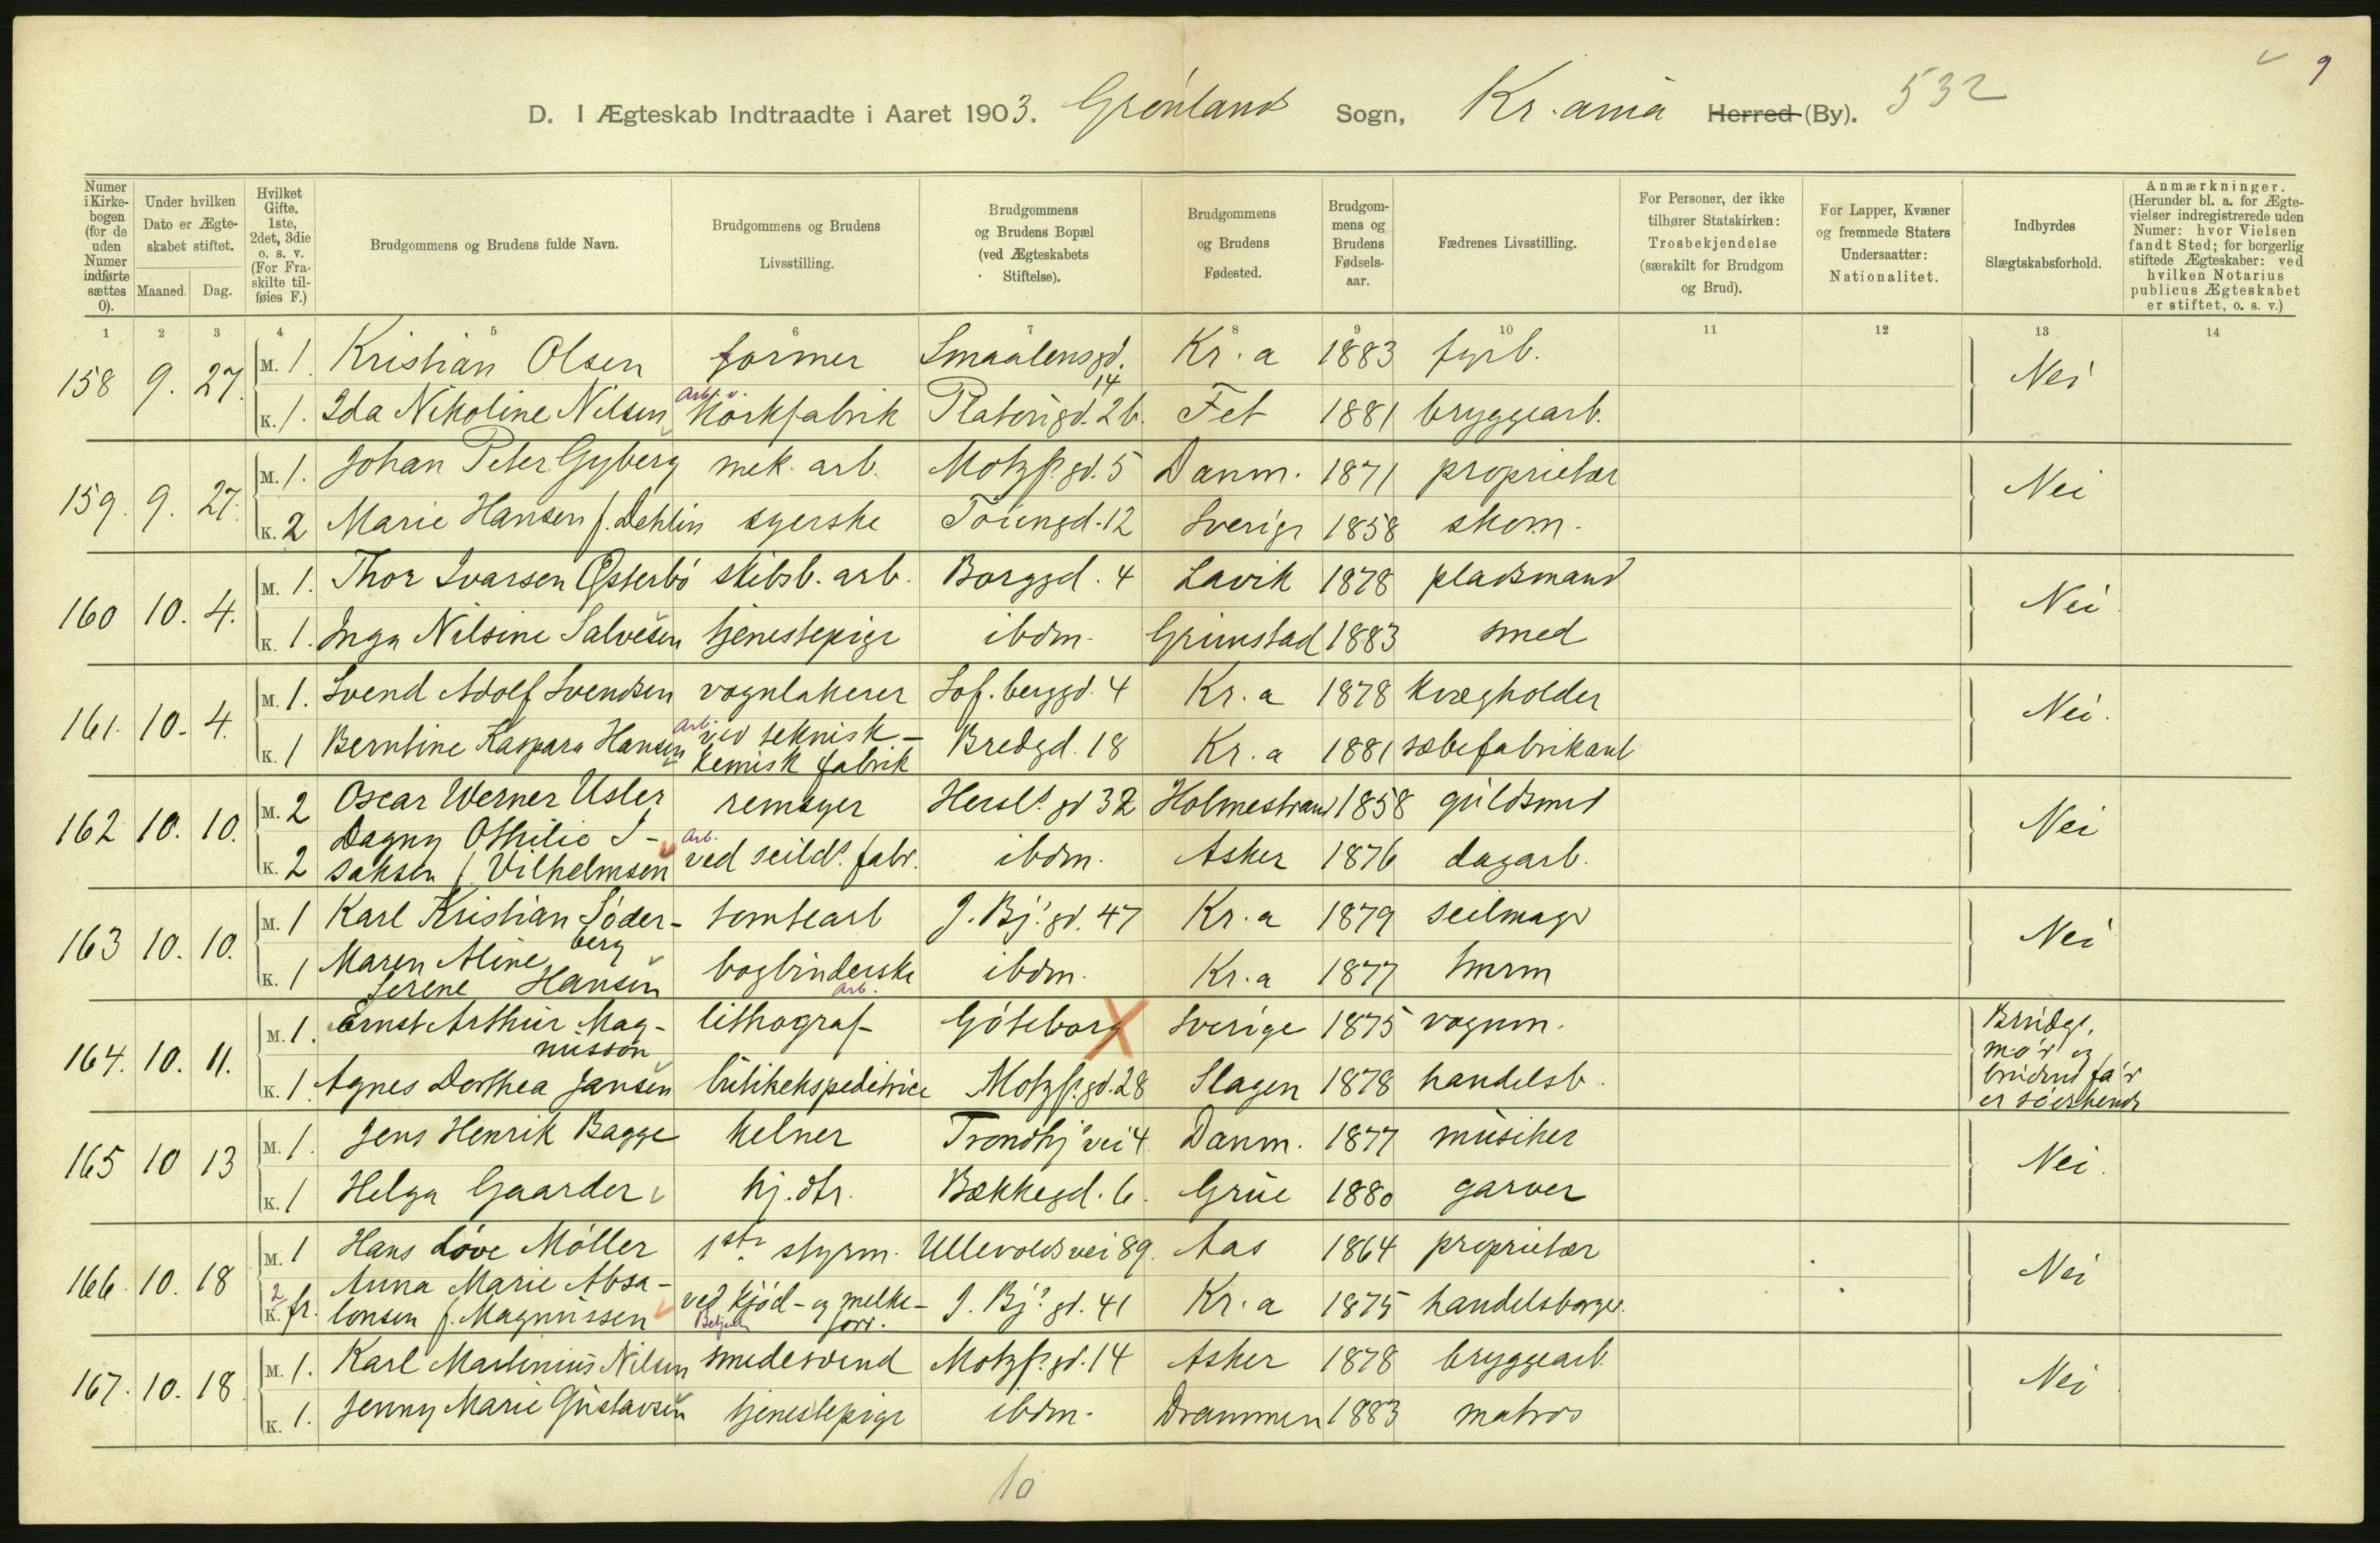 9
D. I Ægteskab Indtraadte i Aaret 1903. Grönland Sogn, Kr.ania Herred (By). 532
Numer i Kirkebogen (for de uden Numer indførte sættes 0).
Under hvilken Dato er Ægteskabet stiftet.
Maaned. Dag.
Hvilket Gifte. 1ste, 2det, 3die o. s. v. (For Fraskilte tilføies F.)
Brudgommens og Brudens fulde Navn.
Brudgommens og Brudens Livsstilling.
Brudgommens og Brudens Bopæl (ved Ægteskabets Stiftelse).
Brudgommens og Brudens Fødested.
Brudgommens og Brudens Fødselsaar.
Fædrenes Livsstilling.
For Personer, der ikke tilhører Statskirken: Trosbekjendelse (særskilt for Brudgom og Brud).
For Lapper, Kvæner og fremmede Staters Undersaatter: Nationalitet.
Indbyrdes Slægtskabsforhold.
Anmærkninger. (Herunder bl. a. for Ægtevielser indregistrerede uden Numer: hvor Vielsen fandt Sted; for borgerlig stiftede Ægteskaber: ved hvilken Notarius publicus Ægteskabet er stiftet, o. s. v.)
1 2 3 4 5 6 7 8 9 10 11 12 13 14
158 9. 27. M. 1. Kristian Olsen former Smaalensgd. 14 Kr.a 1883 fyrb. Nei
K. 1. Ida Nikoline Nilsen Arb. v. Korkfabrik Platöugd. 2b. Fet 1881 bryggearb.
159. 9. 27. M. 1. Johan Peter Gyberg mek. arb. Motzf. gd. 5 Danm. 1871 proprietær Nei
K. 2 Marie Hansen f. Dehlin syerske Töiengd. 12 Sverige 1858 skom.
160 10. 4. M. 1. Thor Ivarsen Österbö skibsb. arb. Borggd. 4 Lavik 1878 pladsmand Nei
K. 1. Inga Nilsine Salvesen tjenestepige ibdm. Grimstad 1883 smed
161. 10. 4. M. 1. Svend Adolf Svendsen vognlakerer Sof. berggd. 4 Kr.a 1878 kvægholder Nei.
K. 1 Berntine Kaspara Hansen Arb. ved teknisk-kemisk fabrik Bredgd. 18 Kr.a 1881 sæbefabrikant
162 10. 10. M. 2 Oscar Werner Usler remsyer Hersl. gd 32 Holmestrand 1858 guldsmed Nei
K. 2 Dagny Othilie Isaksen f. Vilhelmsen Arb. ved seilds. fabr. ibdm. Asker 1876 dagarb.
163 10. 10. M. 1 Karl Kristian Söderberg tomtearb J. Bj. gd. 47 Kr.a 1879 seilmager Nei
K. 1 Maren Aline Serene Hansen bogbinderske Arb. ibdm. Kr.a 1877 tmrm
164. 10. 11. M. 1. Ernst Arthur Magnusson lithograf Göteborg Sverige 1875 vognm. Brudg. mo'r og brudens fa'r er söskende
K. 1. Agnes Dorthea Jansen butikekspeditrice Motzf. gd. 28 Slagen 1878 handelsb.
165 10 13 M. 1. Jens Henrik Bagge kelner Trondhj vei 4 Danm. 1877 musiker Nei.
K. 1 Helga Gaarder hj. dtr. Bækkegd. 6. Grue 1880 garver
166. 10. 18 M. 1 Hans Löve Möller 1ste styrm. Ullevoldsvei 89. Aas 1864 proprietær Nei
K. 2 fr. Anna Marie Absalonsen f. Magnussen ved kjöd- og melkeforr. J. Bj. gd. 41 Kr.a 1875 handelsborger.
167. 10. 18 M. 1. Karl Martinius Nilsen smedesvend Motzf. gd. 14 Asker 1878 bryggearb. Nei
K. 1. Jenny Marie Gustavsen tjenestepige ibdm. Drammen 1883 matros
10